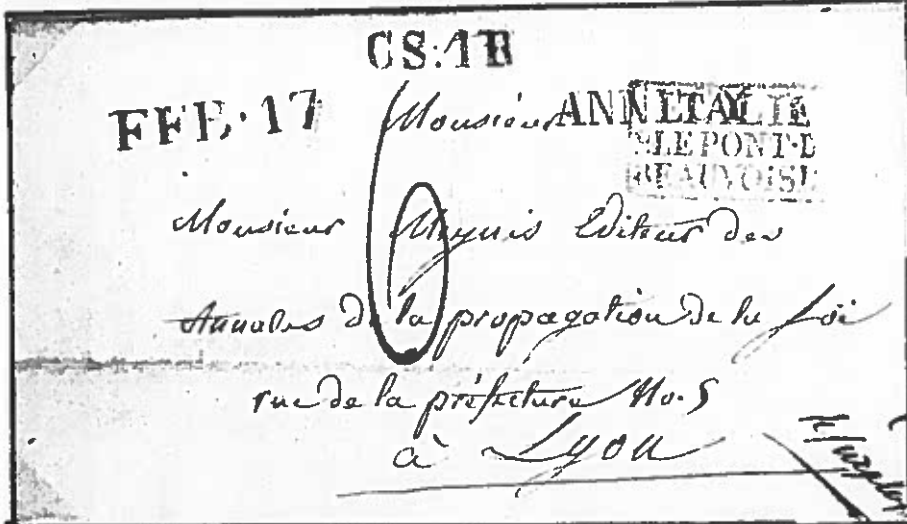 CS.1R
FFE.17
ANNECY
ITALIE
PAR LE PONT-D
BEAUVOISI
Monsieur
Monsieur Meynis Editeur des
Annales de la propagation de la foi
rue de la préfecture No. 5
à Lyon